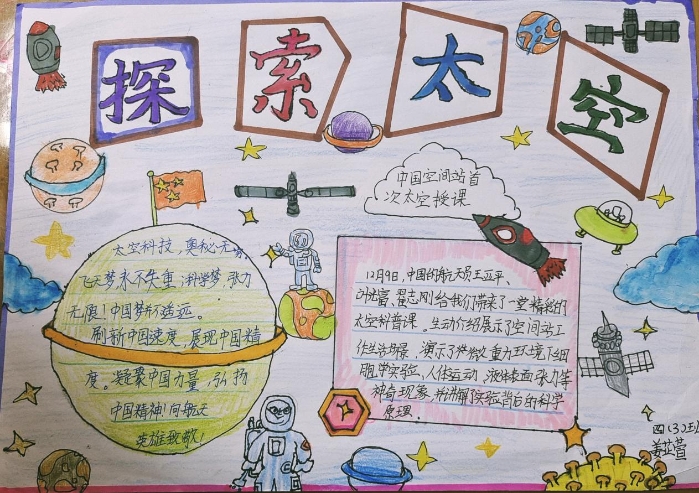 探索太空
中国空间站首
次太空授课
太空科技，奥秘无穷，
飞天梦永不失重，科学梦张力
无限！中国梦行益远。
刷新中国速度，展现中国精
度。凝聚中国力量，弘扬
中国精神！向航天
英雄致敬！
12月9日，中国的航天员王亚平、
叶光富、翟志刚给我们带来了一堂精彩的
太空科普课。生动介绍展示了空间站工
作生活场景，演示了微重力环境下细
胞学实验、人体运动、液体表面张力等
神奇现象，并讲解了实验背后的科学
原理。
四(3)班
姜芷萱